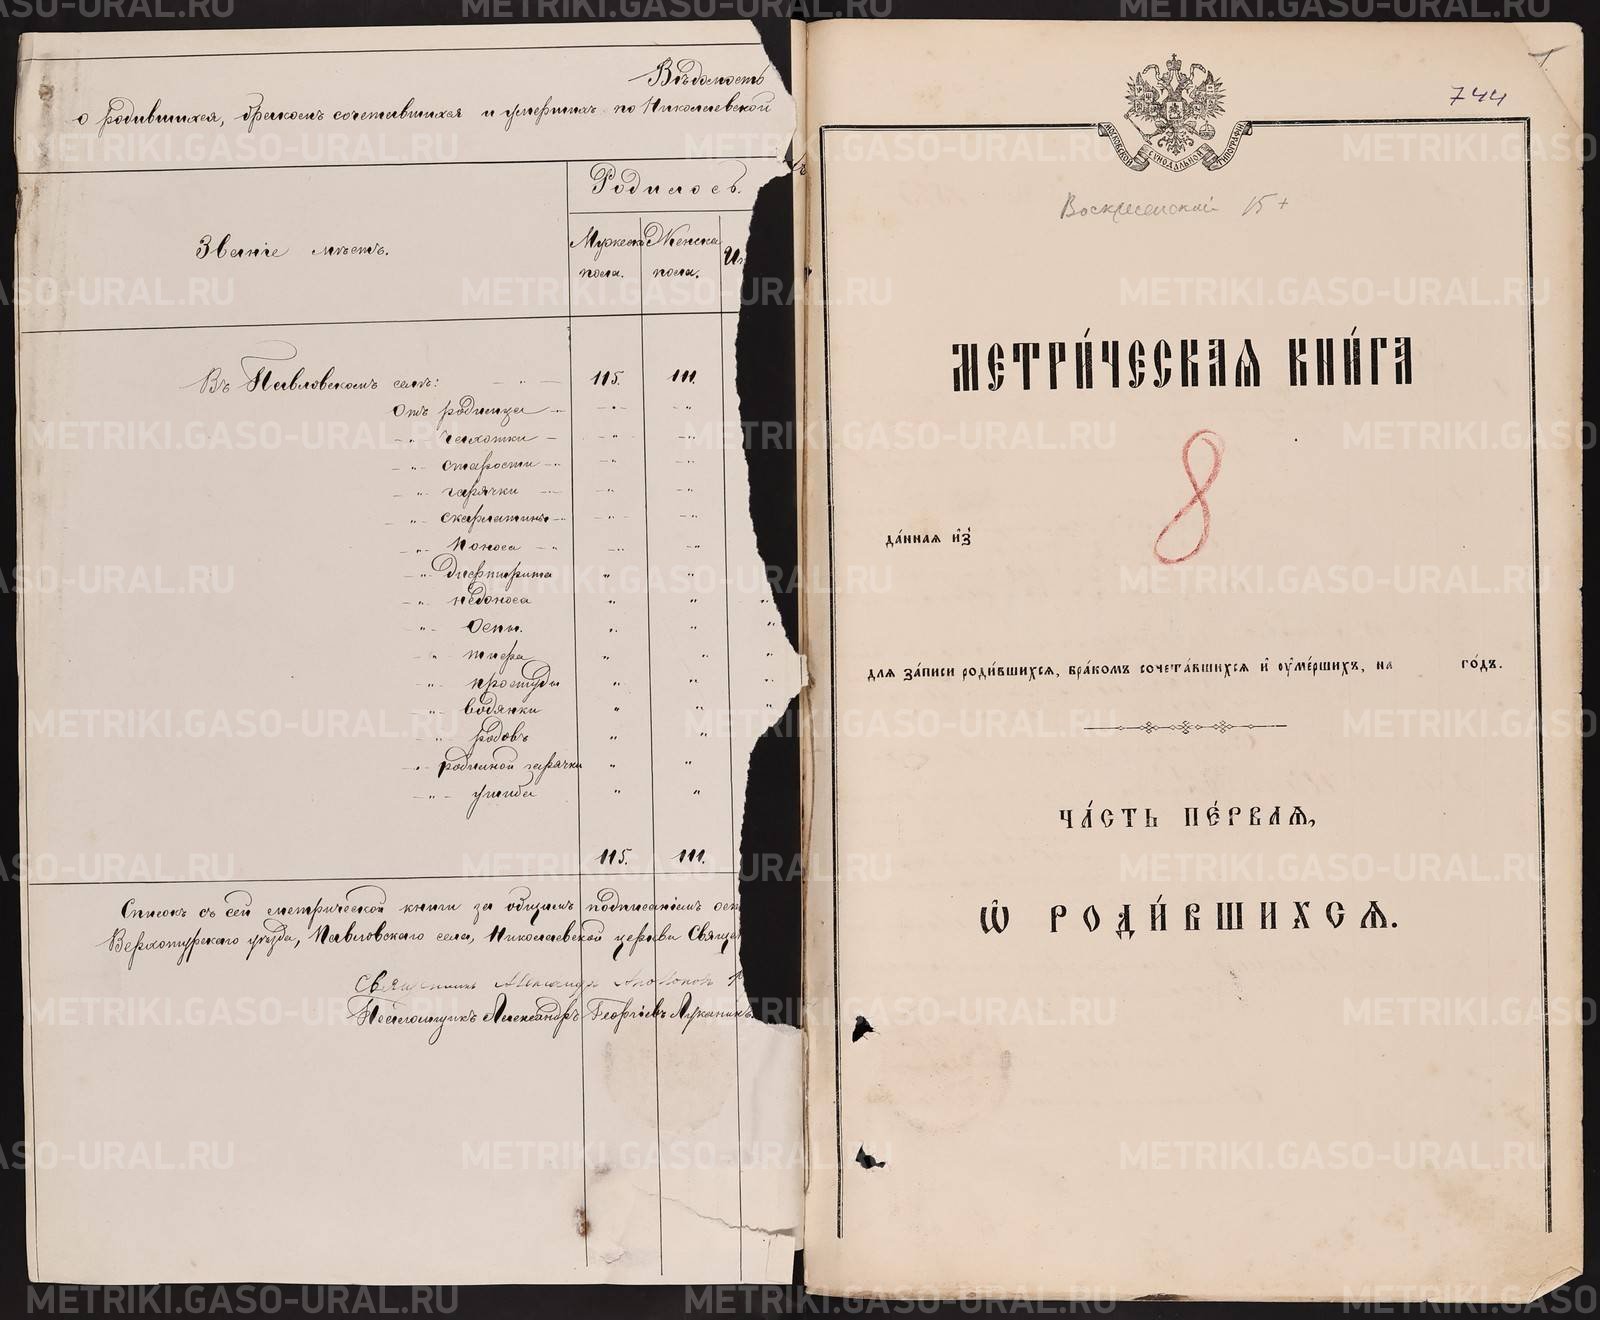 Вѣдомость
о родившихся, бракомъ сочетавшихся и умершихъ по Николаевской
Родилось.
Званіе мѣстъ.
Мужеска пола.
Женска пола.
Въ Павловскомъ селѣ: 115. 111.
Отъ родимца
" чахотки
" старости
" горячки
" скарлатины
" поноса
" дифтирита
" недоноса
" Оспы.
" тифа
" простуды
" водянки
" родовъ
" родильной горячки
" ушиба
115. 111.
Списокъ съ сей метрической книги за общимъ подписаніемъ
Верхотурскаго уѣзда, Павловскаго села, Николаевской церкви
Священникъ Александръ
Псаломщикъ Александръ Георгіевъ Луканинъ.
1.
744
МОСКОВСКОЙ СѴНОДАЛЬНОЙ ТИПОГРАФІИ
Воскресенской 15+
МЕТРИ́ЧЕСКАѦ КНИ́ГА
8
да́ннаѧ и҆з̾
длѧ за́писи роди́вшихсѧ, бра́комъ сочета́вшихсѧ и҆ ᲂу҆ме́ршихъ, на го́дъ.
ЧА́СТЬ ПЕ́РВАѦ,
Ѽ РОДИ́ВШИХСѦ.
METRIKI.GASO-URAL.RU